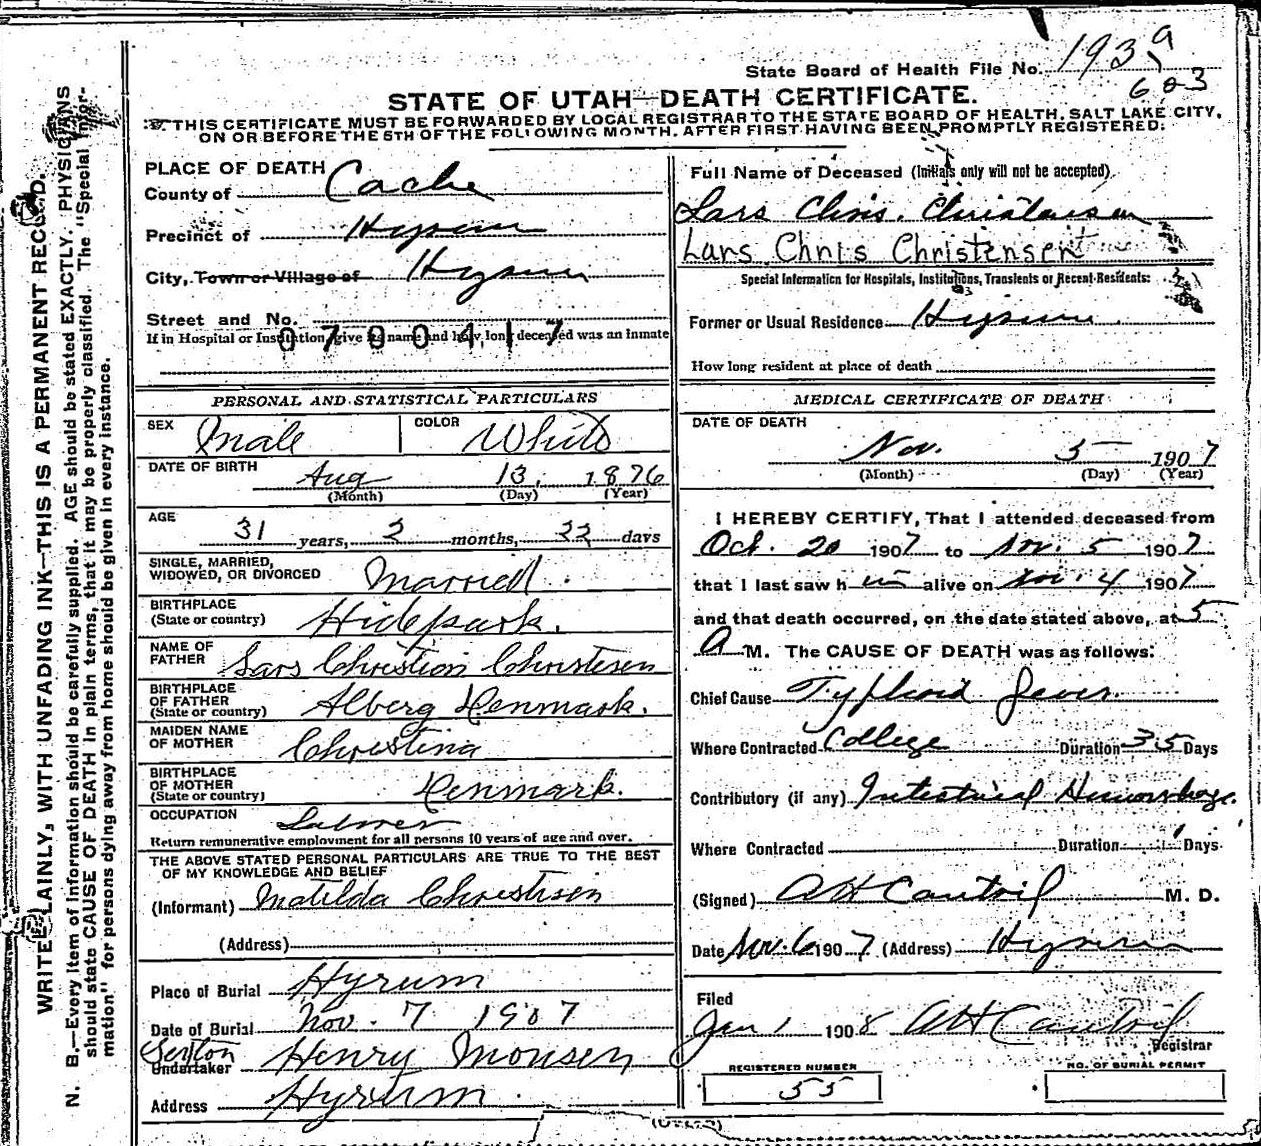 State Board of Health File No. 1939
603
STATE OF UTAH—DEATH CERTIFICATE.
THIS CERTIFICATE MUST BE FORWARDED BY LOCAL REGISTRAR TO THE STATE BOARD OF HEALTH, SALT LAKE CITY,
ON OR BEFORE THE 5TH OF THE FOLLOWING MONTH, AFTER FIRST HAVING BEEN PROMPTLY REGISTERED:
WRITE PLAINLY, WITH UNFADING INK—THIS IS A PERMANENT RECORD.
N. B.—Every item of information should be carefully supplied. AGE should be stated EXACTLY. PHYSICIANS
should state CAUSE OF DEATH in plain terms, that it may be properly classified. The "Special Infor-
mation" for persons dying away from home should be given in every instance.
PLACE OF DEATH
County of Cache
Precinct of Hyrum
City, Town or Village of Hyrum
Street and No.
0700417
If in Hospital or Institution, give its name and how long deceased was an inmate
PERSONAL AND STATISTICAL PARTICULARS
SEX Male COLOR White
DATE OF BIRTH Aug 13, 1876
(Month) (Day) (Year)
AGE 31 years, 2 months, 22 days
SINGLE, MARRIED,
WIDOWED, OR DIVORCED Married.
BIRTHPLACE
(State or country) Hidepark.
NAME OF
FATHER Lars Christian Christesen
BIRTHPLACE
OF FATHER
(State or country) Alberg Denmark.
MAIDEN NAME
OF MOTHER Christina
BIRTHPLACE
OF MOTHER
(State or country) Denmark.
OCCUPATION Laborer
Return remunerative employment for all persons 10 years of age and over.
THE ABOVE STATED PERSONAL PARTICULARS ARE TRUE TO THE BEST
OF MY KNOWLEDGE AND BELIEF
(Informant) Matilda Christisen
(Address)
Place of Burial Hyrum
Date of Burial Nov. 7 1907
Sexton
Undertaker Henry Monsen
Address Hyrum
Full Name of Deceased (Initials only will not be accepted)
Lars Chris. Christensen
Lars Chris Christensen
Special Information for Hospitals, Institutions, Transients or Recent Residents:
Former or Usual Residence Hyrum
How long resident at place of death
MEDICAL CERTIFICATE OF DEATH
DATE OF DEATH
Nov. 5 1907
(Month) (Day) (Year)
I HEREBY CERTIFY, That I attended deceased from
Oct. 20 1907 to Nov. 5 1907
that I last saw him alive on Nov. 4 1907
and that death occurred, on the date stated above, at 5
A M. The CAUSE OF DEATH was as follows:
Chief Cause Typhoid fever.
Where Contracted College Duration 35 Days
Contributory (if any) Intestinal Hemorrhage.
Where Contracted Duration 1 Days
(Signed) A H Cantril M. D.
Date Nov. 6 1907 (Address) Hyrum
Filed
Jan 1 1908 A H Cantril
Registrar
REGISTERED NUMBER NO. OF BURIAL PERMIT
55
(OVER)